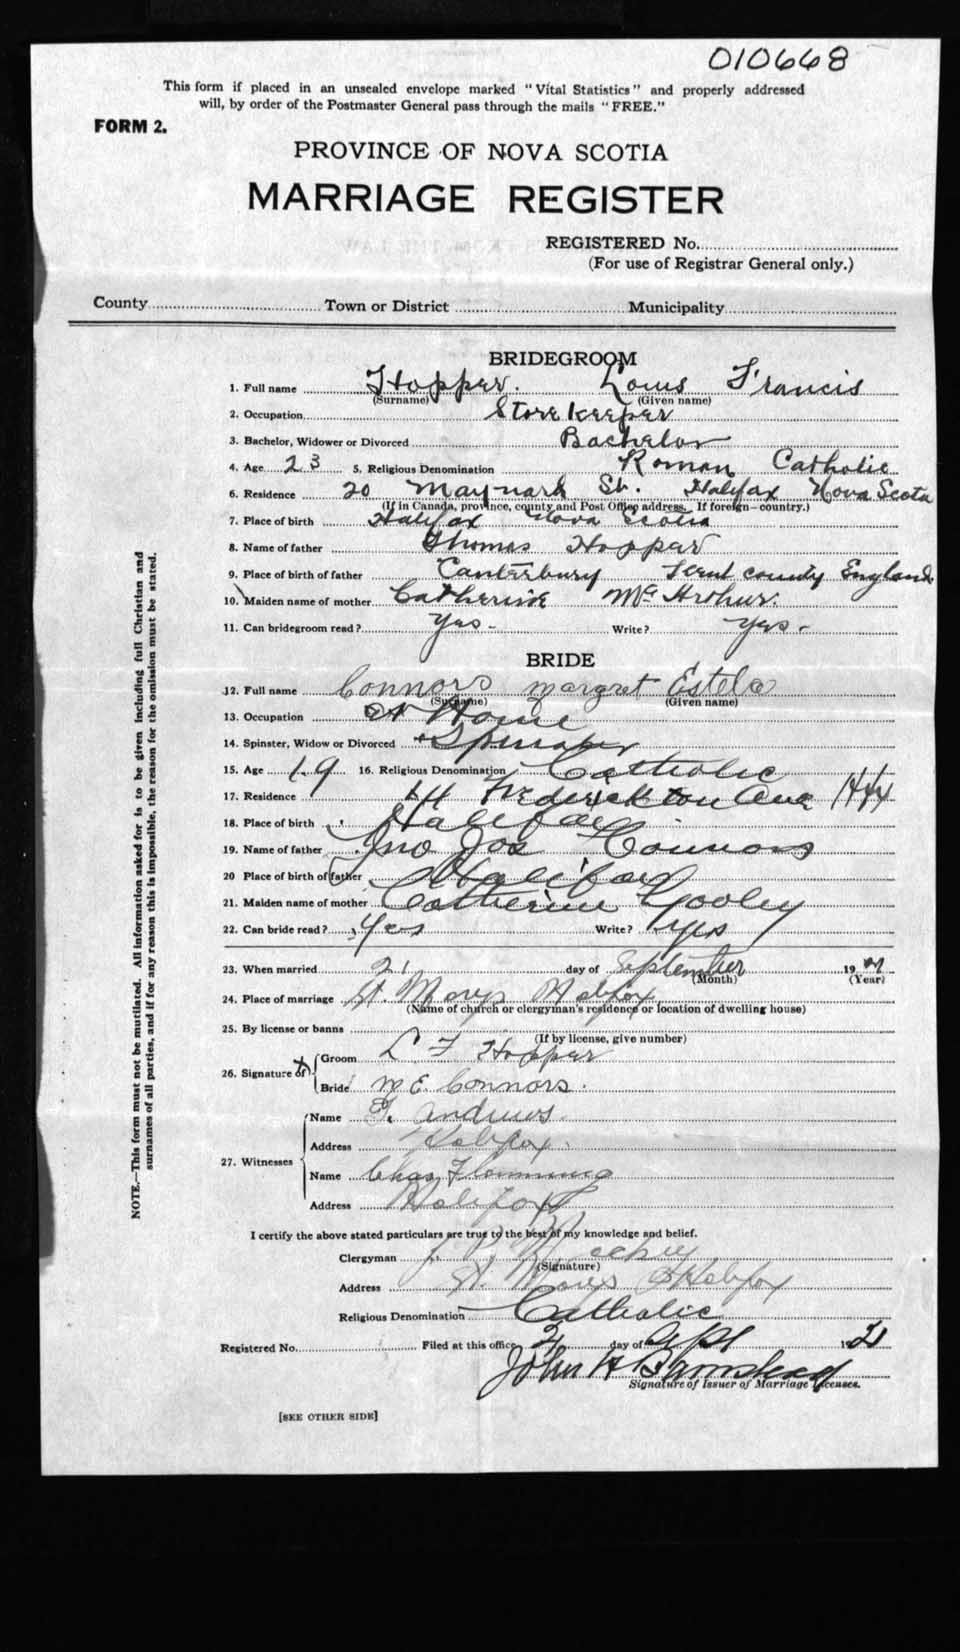 010668
This form if placed in an unsealed envelope marked "Vital Statistics" and properly addressed
will, by order of the Postmaster General pass through the mails "FREE."
FORM 2.
PROVINCE OF NOVA SCOTIA
MARRIAGE REGISTER
REGISTERED No.
(For use of Registrar General only.)
County Town or District Municipality
BRIDEGROOM
1. Full name Hopper. Louis Francis
(Surname) (Given name)
2. Occupation Store Keeper
3. Bachelor, Widower or Divorced Bachelor
4. Age 23 5. Religious Denomination Roman Catholic
6. Residence 20 Maynard St. Halifax Nova Scota
(If in Canada, province, county and Post Office address. If foreign—country.)
7. Place of birth Halifax Nova Scotia
8. Name of father Thomas Hopper
9. Place of birth of father Canterbury Kent county England
10. Maiden name of mother Catherine McArthur.
11. Can bridegroom read? Yes - Write? Yes -
BRIDE
12. Full name Connors margret Estela
(Surname) (Given name)
13. Occupation at Home
14. Spinster, Widow or Divorced Spinster
15. Age 19 16. Religious Denomination Catholic
17. Residence Frederickton Ave Hfx
18. Place of birth Halifax
19. Name of father Jno Jos Connors
20 Place of birth of father Halifax
21. Maiden name of mother Catherine Gooley
22. Can bride read? Yes Write? Yes
23. When married 21 day of September 19
(Month) (Year)
24. Place of marriage St. Marys Halifax
(Name of church or clergyman's residence or location of dwelling house)
25. By license or banns
(If by license, give number)
26. Signature of Groom L F Hopper
Bride M E Connors.
27. Witnesses Name Andrews
Address Halifax
Name Chas Flemming
Address Halifax
I certify the above stated particulars are true to the best of my knowledge and belief.
Clergyman
(Signature)
Address St. Marys Halifax
Religious Denomination Catholic
Registered No. Filed at this office day of 19 21
John H Barnstead
Signature of Issuer of Marriage Licenses.
[SEE OTHER SIDE]
NOTE.—This form must not be mutilated. All information asked for is to be given including full Christian and
surnames of all parties, and if for any reason this is impossible, the reason for the omission must be stated.